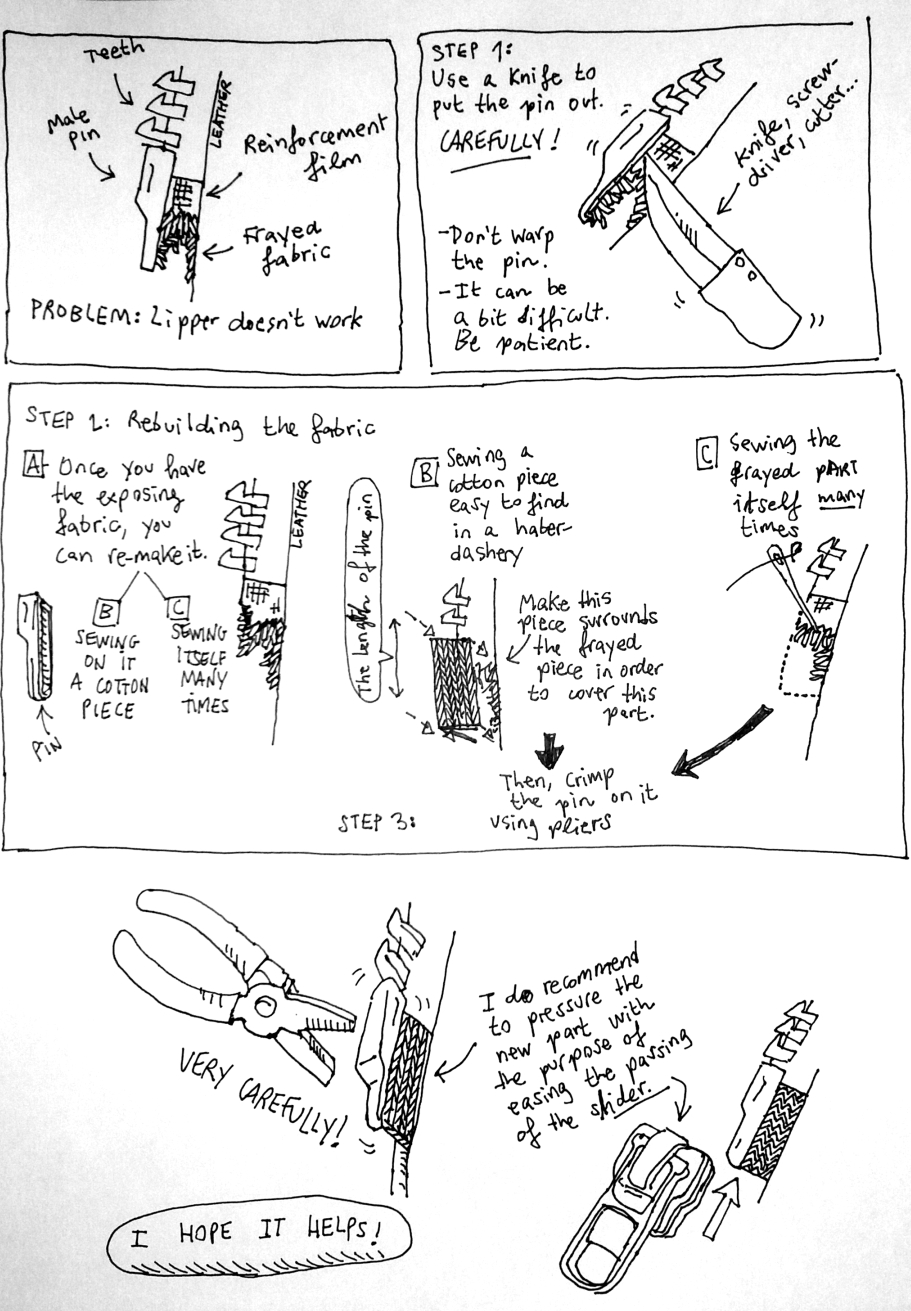 Teeth
Male
pin
LEATHER
Reinforcement
film
Frayed
fabric
PROBLEM: Zipper doesn't work
STEP 1:
Use a Knife to
put the pin out.
CAREFULLY!
Knife, screw-
driver, cutter...
-Don't warp
the pin.
-It can be
a bit difficult.
Be patient.
STEP 2: Rebuilding the fabric
A Once you have
the exposing
fabric, you
can re-make it.
B
SEWING
ON IT
A COTTON
PIECE
C
SEWING
ITSELF
MANY
TIMES
PIN
LEATHER
The length of the pin
B Sewing a
cotton piece
easy to find
in a haber-
dashery
Make this
piece surrounds
the frayed
piece in order
to cover this
part.
C Sewing the
frayed PART
itself many
times
STEP 3:
Then, crimp
the pin on it
using pliers
VERY CAREFULLY!
I do recommend
to pressure the
new part with
the purpose of
easing the passing
of the slider.
I HOPE IT HELPS!